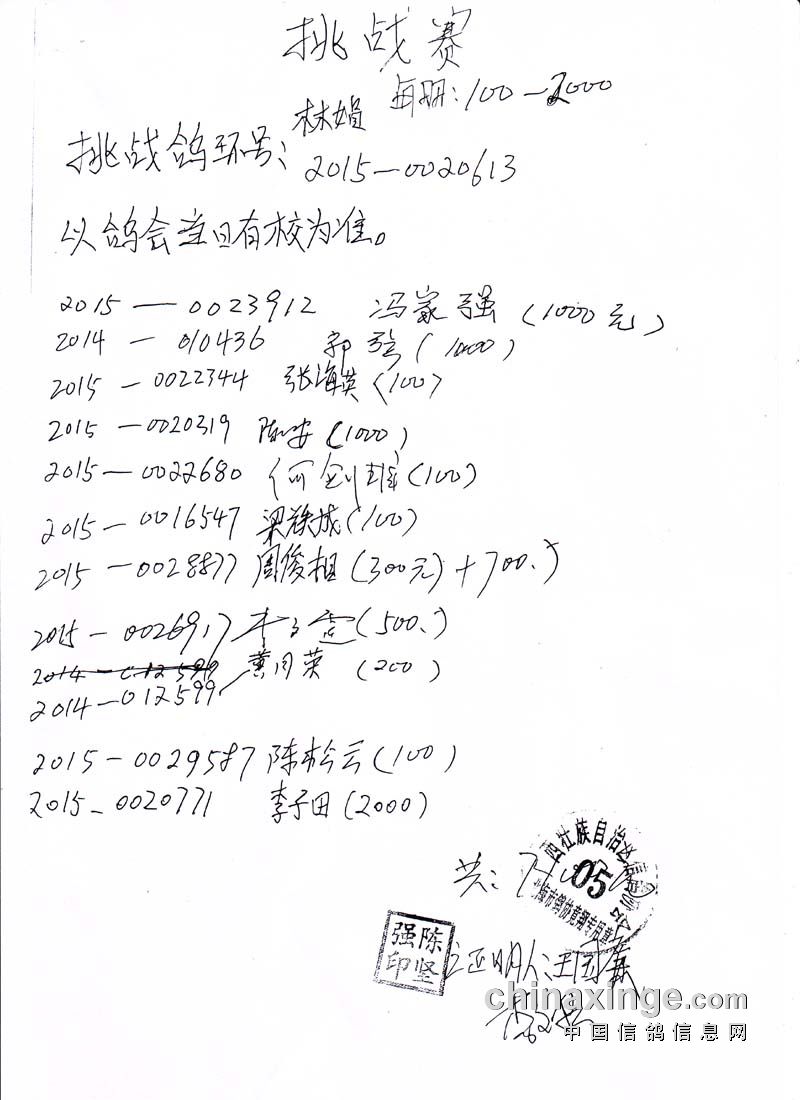 挑战赛
林娟 每羽:100-2000
挑战鸽环号:2015-0020613
以鸽会当日有校为准。
2015-0023912 冯家强(1000元)
2014-010436 郭强(1000)
2015-0022344 张海英(100)
2015-0020319 陈安(1000)
2015-0022680 何剑雄(100)
2015-0016547 梁铁成(100)
2015-0028877 周俊相(300元)+700.)
2015-0026917 (500.)
2014-012599 黄月荣(200)
2014-012599
2015-0029587 陈松云(100)
2015-0020771 李子田(2000)
共:
西壮族自治区信鸽
05
海市鸽协竞翔专用章
陈坚强印
证明人:王
chinaxinge.com
中国信鸽信息网